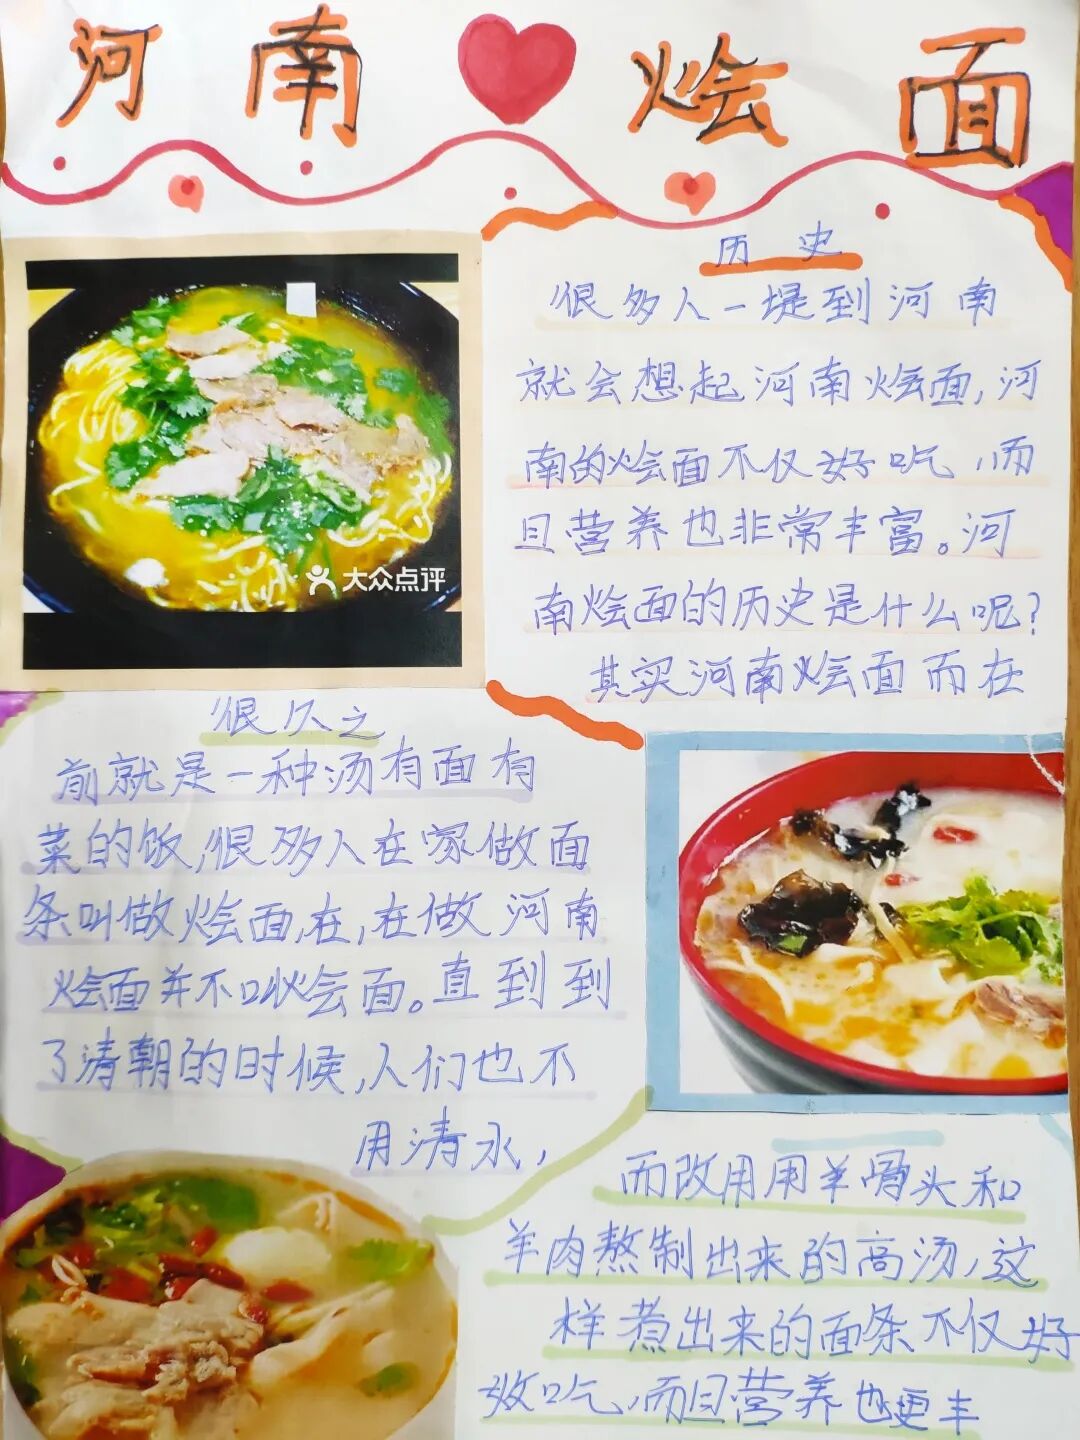 河南烩面
历史
很多人一堤到河南
就会想起河南烩面,河
南的烩面不仅好吃,而
且营养也非常丰富。河
南烩面的历史是什么呢?
其实河南烩面而在
大众点评
很久之
前就是一种汤有面有
菜的饭,很多人在家做面
条叫做烩面,在,在做河南
烩面并不叫烩面。直到到
了清朝的时候,人们也不
用清水,
而改用用羊骨头和
羊肉熬制出来的高汤,这
样煮出来的面条不仅好
效吃,而且营养也更丰